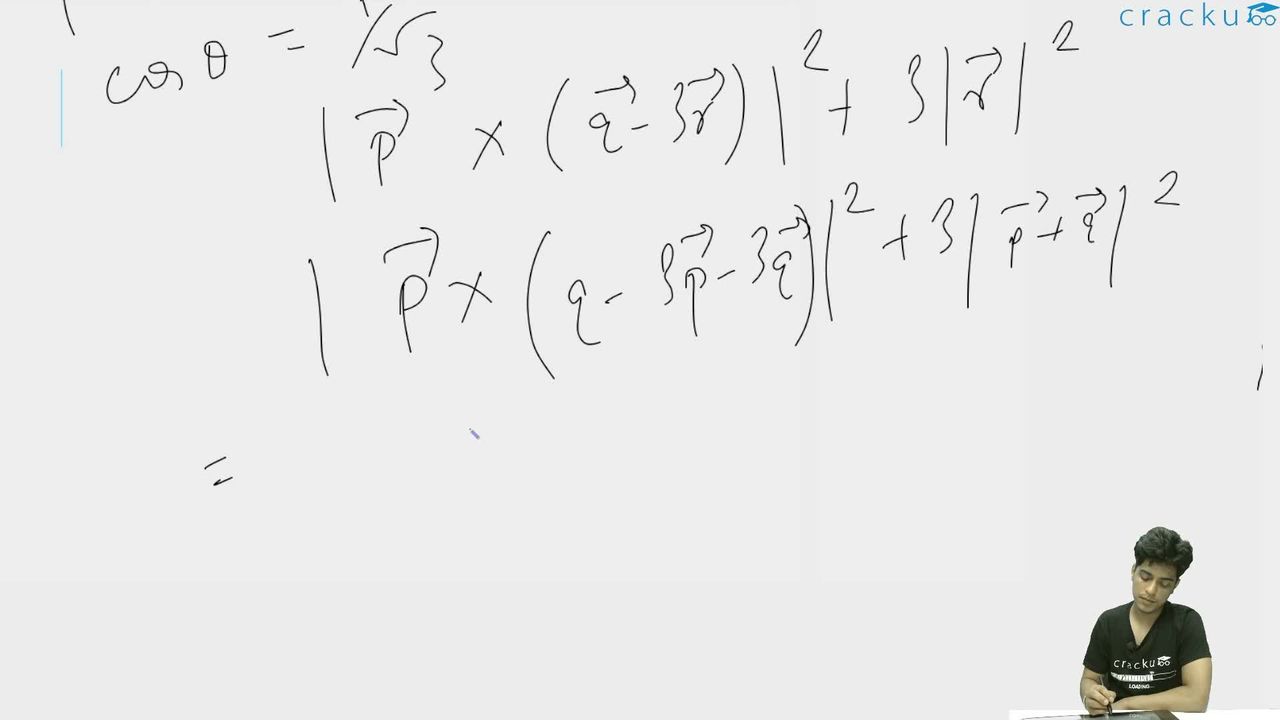 cracku
cos θ = 1/√3
|p⃗ × (q⃗ - 3r⃗)|² + 3|r⃗|²
|p⃗ × (q - 3p⃗ - 3q⃗)|² + 3|p⃗ + q⃗|²
=
cracku
LOADING